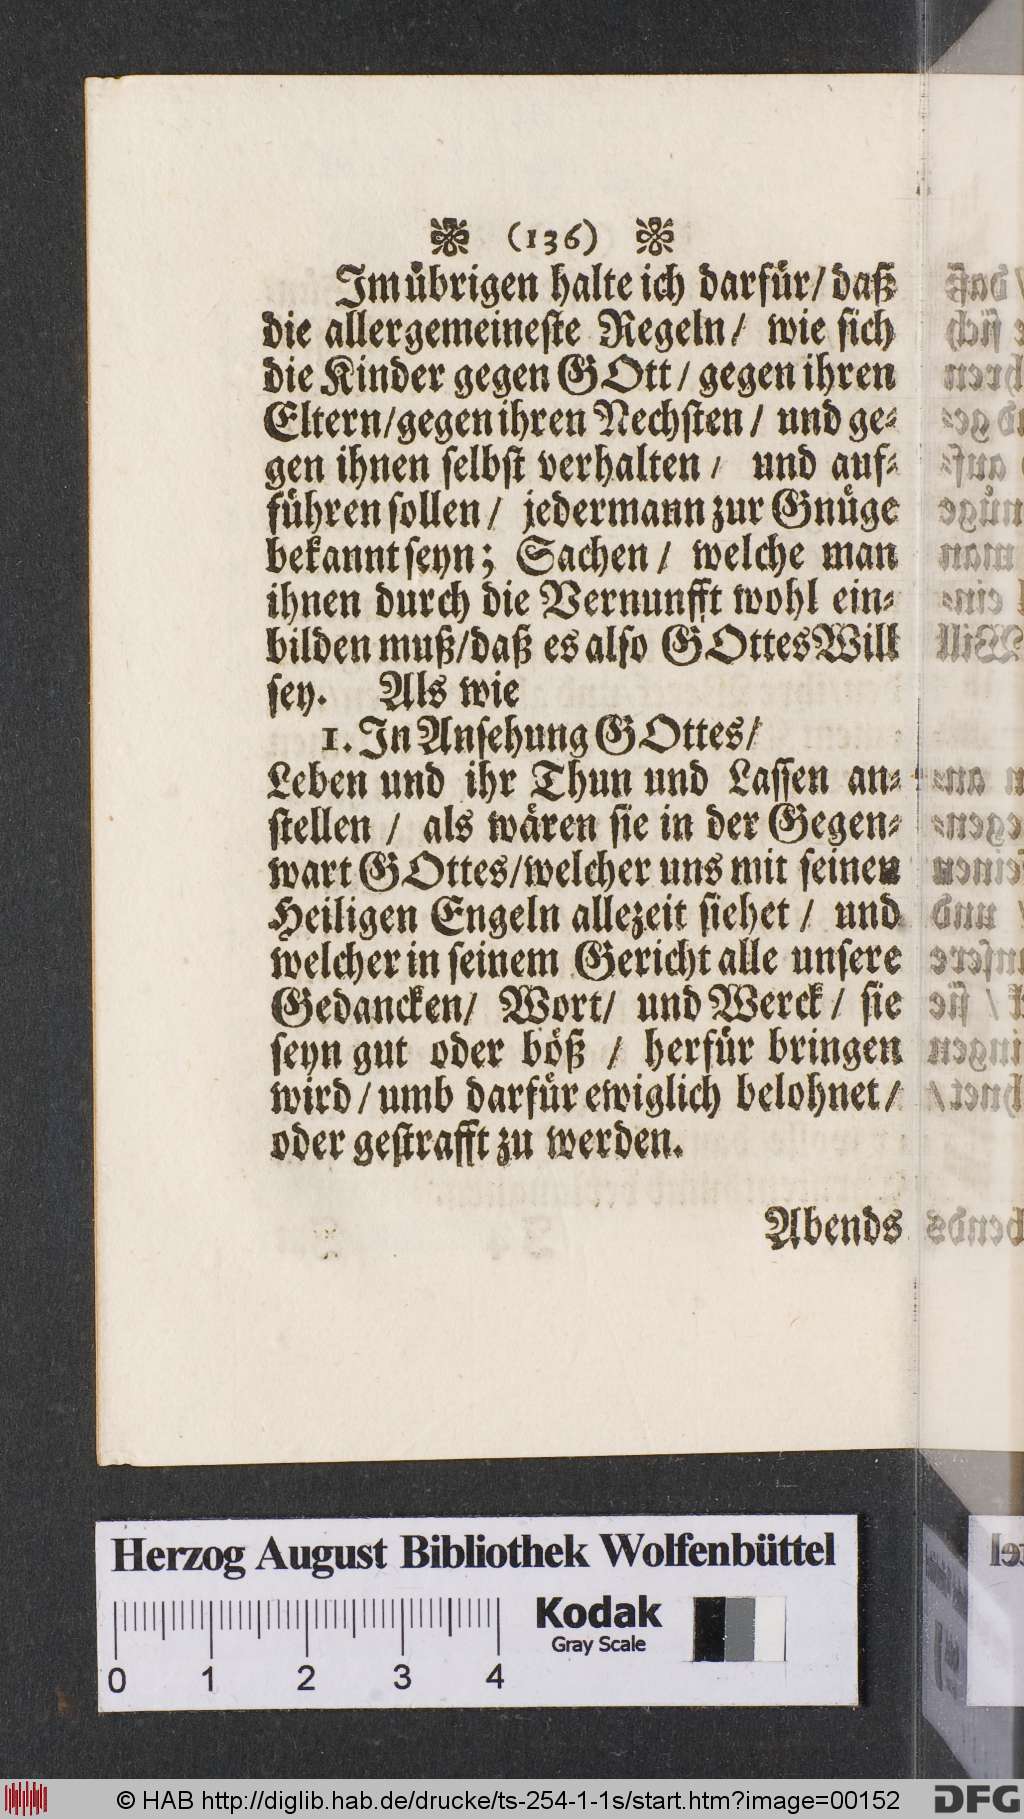 (136)
Im übrigen halte ich darfür/ daß
die allergemeineste Regeln/ wie sich
die Kinder gegen GOtt/ gegen ihren
Eltern/ gegen ihren Nechsten/ und ge⸗
gen ihnen selbst verhalten/ und auf⸗
führen sollen/ jedermann zur Gnüge
bekannt seyn; Sachen/ welche man
ihnen durch die Vernunfft wohl ein⸗
bilden muß/ daß es also GOttes Will
sey. Als wie
1. In Ansehung GOttes/
Leben und ihr Thun und Lassen an⸗
stellen/ als wären sie in der Gegen⸗
wart GOttes/ welcher uns mit seinen
Heiligen Engeln allezeit siehet/ und
welcher in seinem Gericht alle unsere
Gedancken/ Wort/ und Werck/ sie
seyn gut oder böß/ herfür bringen
wird/ umb darfür ewiglich belohnet/
oder gestrafft zu werden.
Abends
Herzog August Bibliothek Wolfenbüttel
Kodak
Gray Scale
0 1 2 3 4
© HAB http://diglib.hab.de/drucke/ts-254-1-1s/start.htm?image=00152
DFG